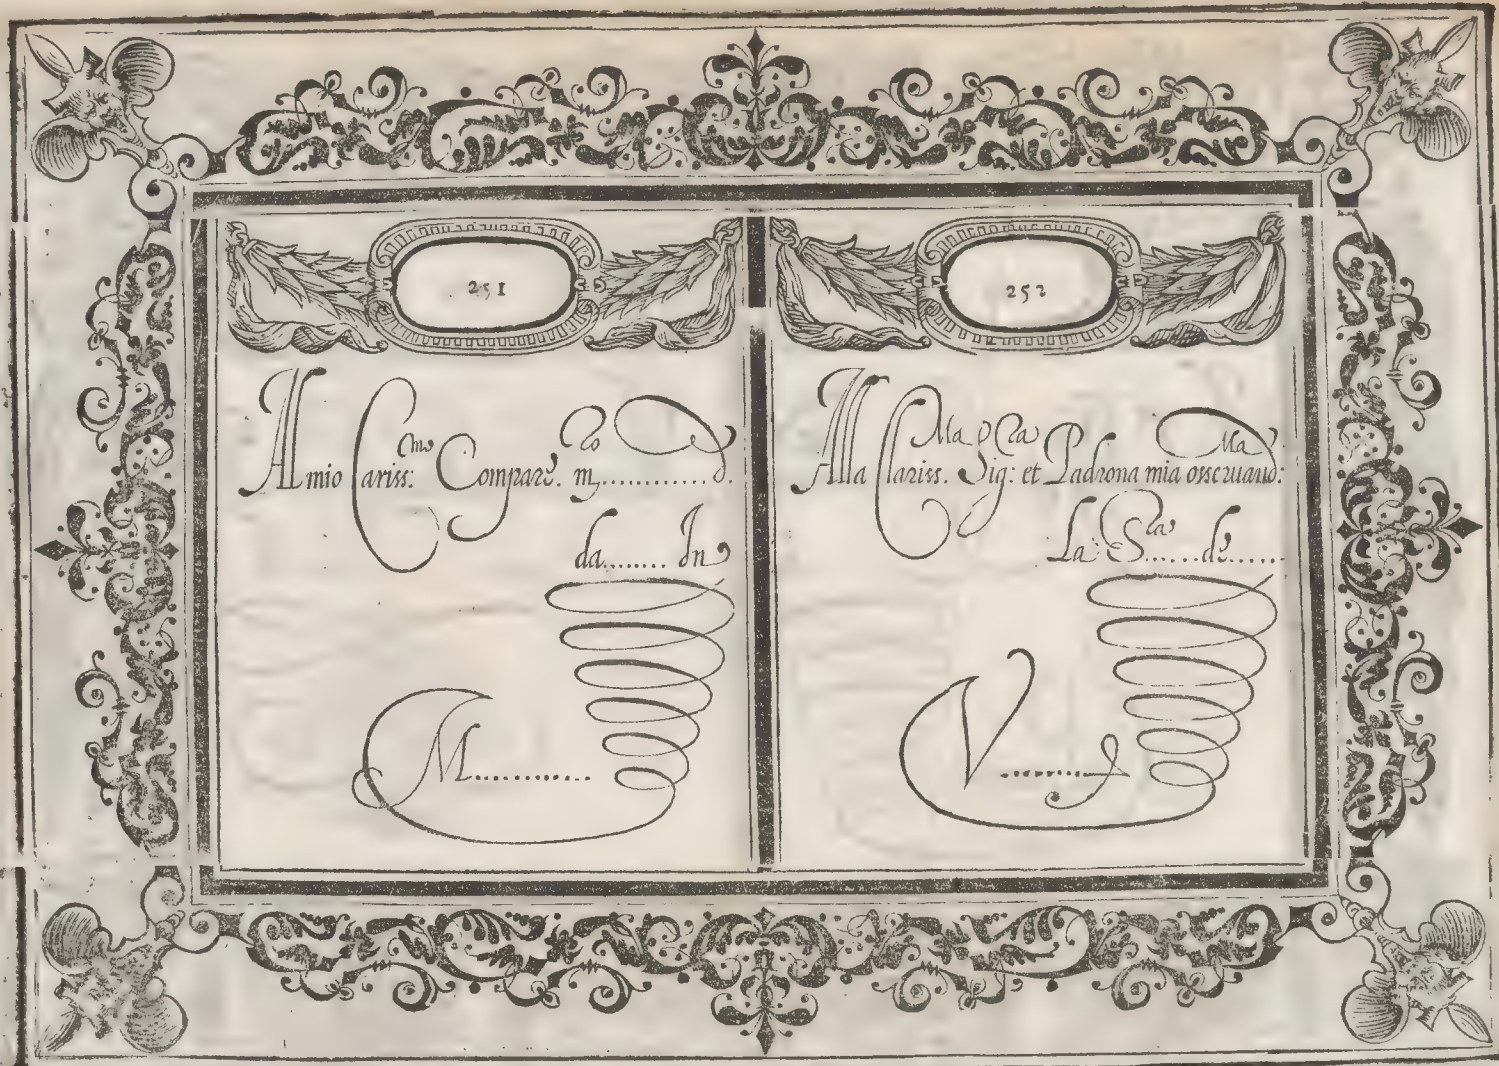 251
Al mio Cariss:mo Compare. m.co ............ d.
da........ In
M............
252
Alla Clariss.ma Sig:ra et Padrona mia osseruand:ma
La S.ra ......de......
V.........